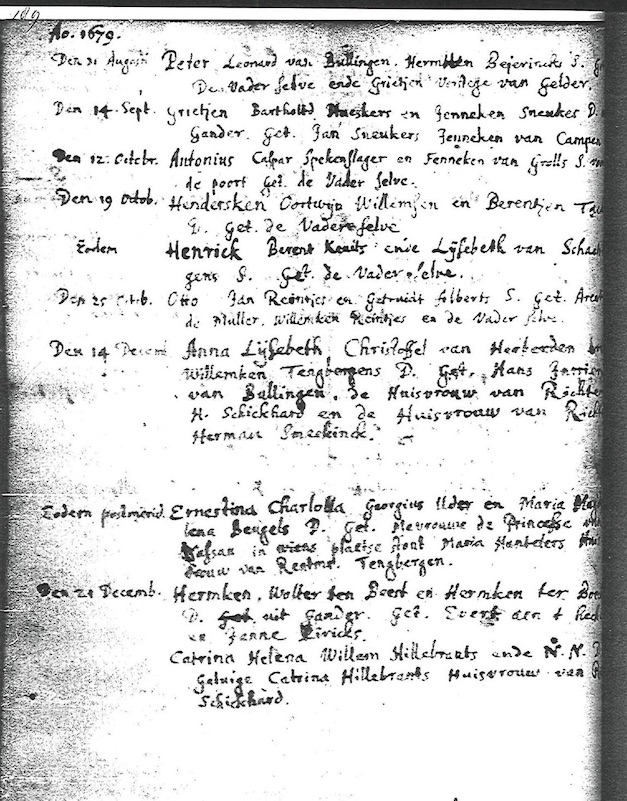 189
Ao. 1679.
Den 21 Augusti Peter Leonard van Bullingen. Hermken Beserincks S. G
De Vader selve ende Grietjen van Gelder.
Den 14 Sept. Grietjen Bartholt Hueskers en Jenneken Sneukes D.
Gander. Get. Jan Sneukers Jenneken van Campen
Den 12. Octobr. Antonius Caspar Spekenslager en Fenneken van Grolls S.
de poort Get. de Vader selve.
Den 19 Octob. Hendersken Oortwyn Willemsen en Berentjen
D. Get. de Vader selve
Eodem Henrick Berent Kruits ende Lysebeth van
gens S. Get. de Vader selve.
Den 25 Octb. Otto Jan Reintjes en Getruidt Alberts S. Get.
de Muller. Willemken Reintjes en de Vader selve.
Den 14 Decemb Anna Lysebeth, Christoffel van Herberden
Willemken Tengbergens D. Get. Hans
van Bullingen, de Huisvrouw van Richter
H. Schickhard en de Huisvrouw van Richt
Herman Smeckinck.
Eodem postmerid. Ernestina Charlotta Georgius Ilder en Maria
lena Beugels D. Get. Mevrouwe de Princesse
Nassau in wiens plaetse stont Maria Hantelers
vrouw van Rentmr. Tengbergen.
Den 21 Decemb. Hermken, Wolter ten Beest en Hermken ter
D. uit Gander. Get. Evert
en Janne Eircks.
Catrina Helena Willem Hillebrants ende N. N. D
getuige Catrina Hillebrants Huisvrouw van
Schickhard.